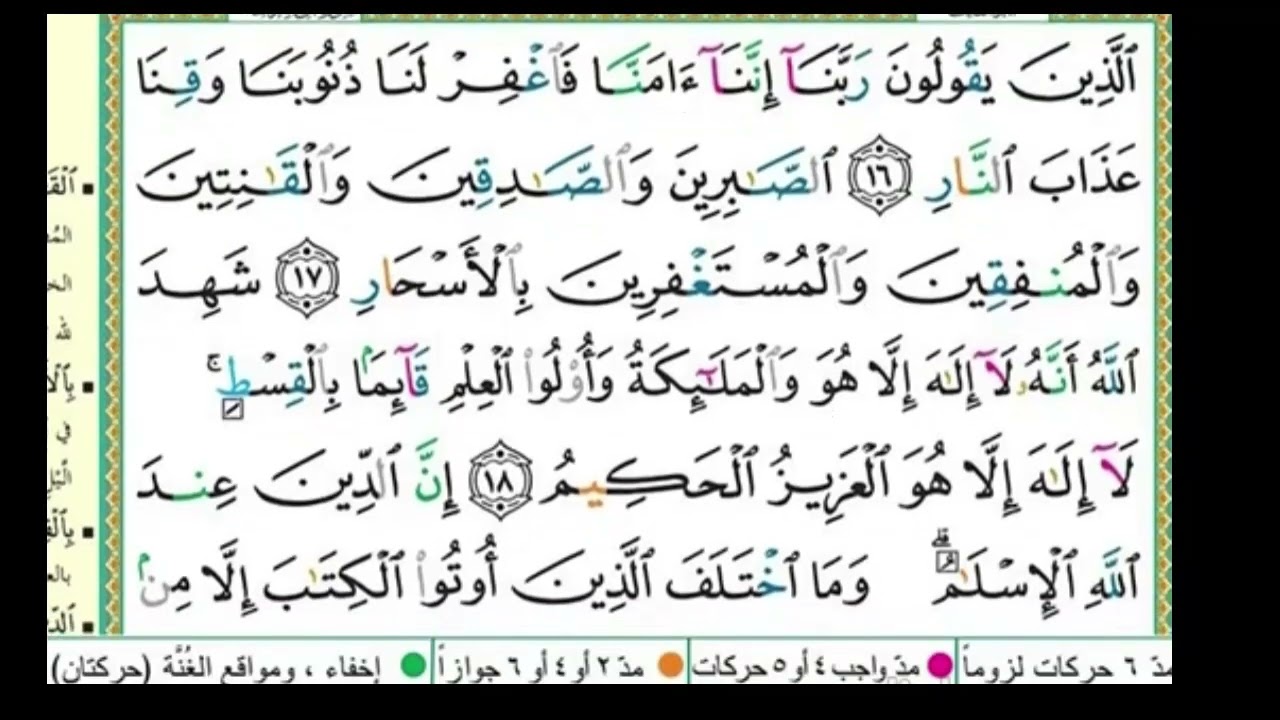 ٱلَّذِينَ يَقُولُونَ رَبَّنَآ إِنَّنَآ ءَامَنَّا فَٱغْفِرْ لَنَا ذُنُوبَنَا وَقِنَا
عَذَابَ ٱلنَّارِ ١٦ ٱلصَّـٰبِرِينَ وَٱلصَّـٰدِقِينَ وَٱلْقَـٰنِتِينَ
وَٱلْمُنفِقِينَ وَٱلْمُسْتَغْفِرِينَ بِٱلْأَسْحَارِ ١٧ شَهِدَ
ٱللَّهُ أَنَّهُۥ لَآ إِلَـٰهَ إِلَّا هُوَ وَٱلْمَلَـٰٓئِكَةُ وَأُو۟لُوا۟ ٱلْعِلْمِ قَآئِمًۢا بِٱلْقِسْطِ ۚ
لَآ إِلَـٰهَ إِلَّا هُوَ ٱلْعَزِيزُ ٱلْحَكِيمُ ١٨ إِنَّ ٱلدِّينَ عِندَ
ٱللَّهِ ٱلْإِسْلَـٰمُ ۗ وَمَا ٱخْتَلَفَ ٱلَّذِينَ أُوتُوا۟ ٱلْكِتَـٰبَ إِلَّا مِنۢ
مدّ ٦ حركات لزوماً مدّ واجب ٤ أو ٥ حركات مدّ ٢ أو ٤ أو ٦ جوازاً إخفاء ، ومواقع الغُنَّة (حركتان)